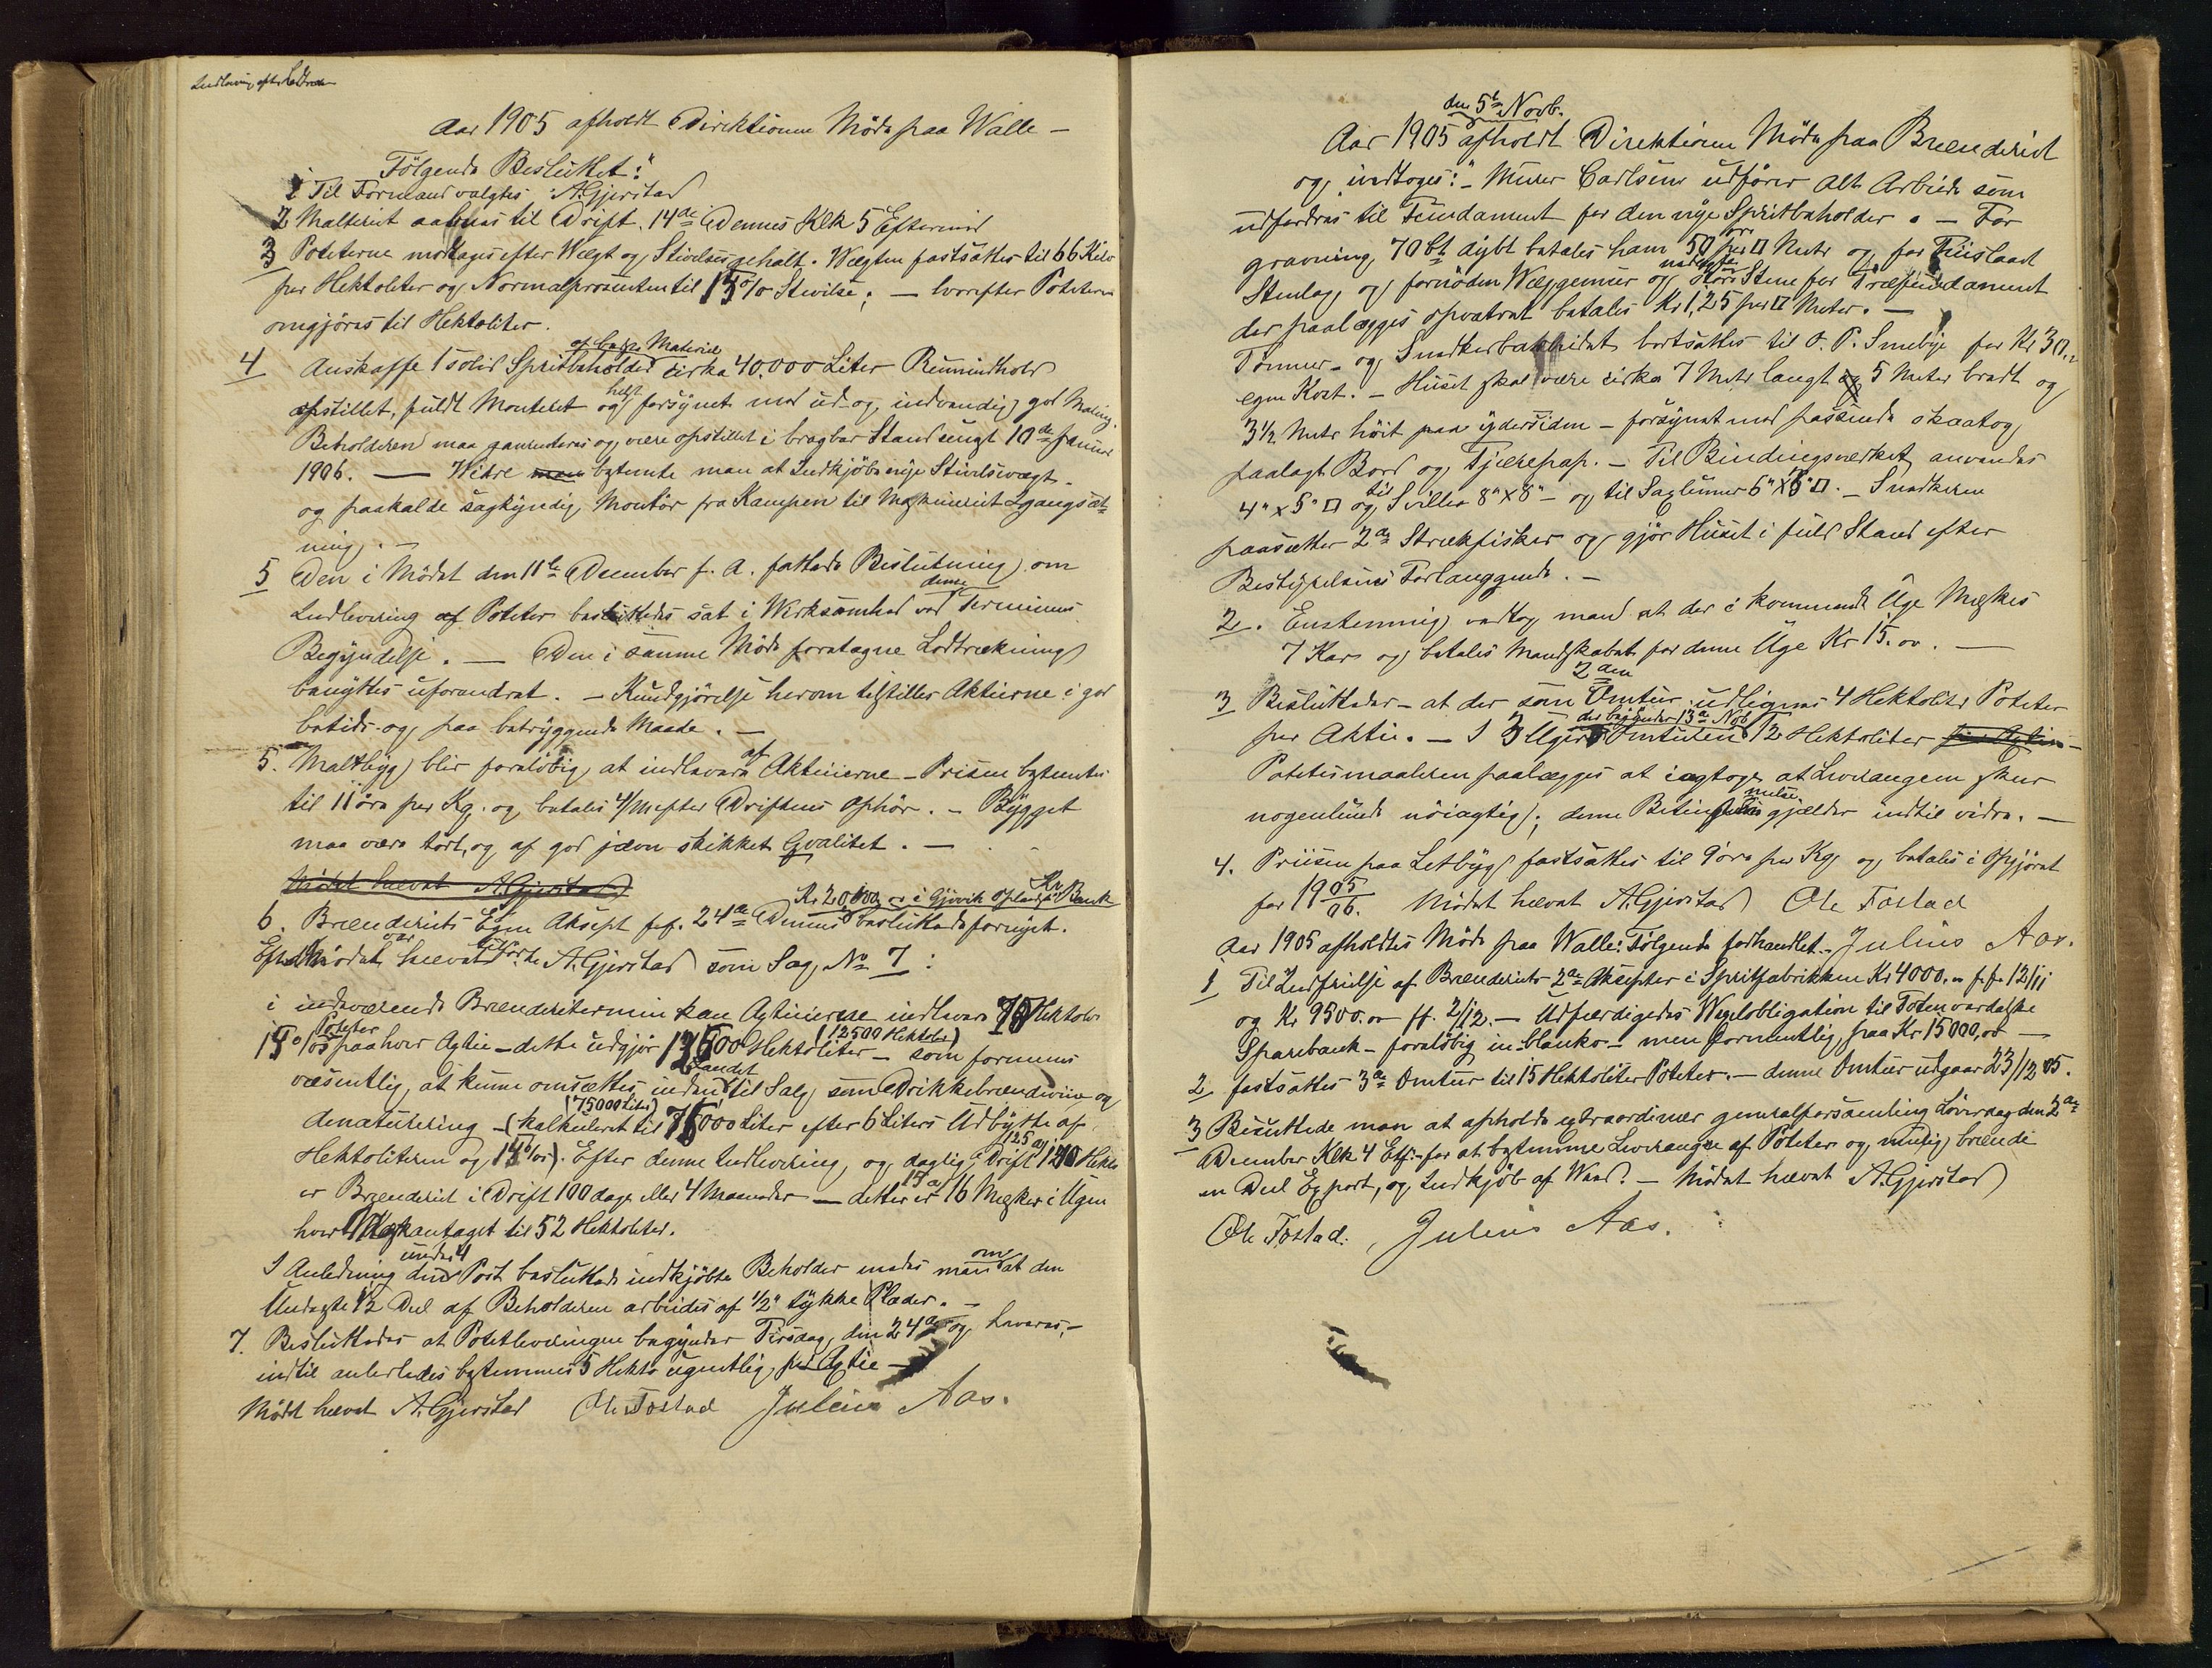 Indlevering efter Lodtræk
Aar 1905 afholdt Direktionen Möde paa Walle –
Følgende Besluttet:"
1 Til Formand valgtes A. Gjerstad
2 Malteriet aabnes til Drift. 14de Dennes Klk 5 Eftermid
3 Poteterne modtages efter Vægt og Stivelsesgehalt. Vægten fastsættes til 66 Kilo
per Hektoliter og Normalprosenten til 15% Stivelse; – hvorefter Poteterne
omgjöres til Hektoliter.
4 Anskaffe 1 solid Spritbeholder af bedste Materiel cirka 40.000 Liter Rumindhold
opstillet, fuldt Monteret og helst forsynet med ud- og indvendig god Maling.
Beholderen maa garanteres og være opstillet i brugbar Stand inngt 10de Januar
1906. — Videre man bestemte man at Indkjöbe nye Stivelsvægt.
og paakalde sagkyndig Montör fra Kampen til Maskineriets Igangsæt-
ning. –
5 Den i Mödet den 11te December f. A. fattede Beslutning om
Indlevering af Poteter besluttedes sat i Virksomhed ved denne Termins
Begyndelse. — Den i samme Möde foretagne Lodtrækning
benyttes uforandret. – Kundgjörelse herom tilstilles Aktierne i god
betids og paa betryggende Maade. –
5. Maltbyg blir foreløbig at indlevere af Aktieierne – Prisen bestemtes
til 11 öre per Kg. og betales 4/m efter Driftens Ophör. – Bygget
maa være tört, og af god jævn skikket Qvalitet. –
Mödet hævet A. Gjerstad
6. Brænderiets Egen Aksept f.f. 24de Dennes Kr 20,000 i Gjövik Oplands Kr Bank besluttede fornyet.
Efter Mödet var hævet A. Gjerstad som Sag No 7:
i indeværende Brænderitermin kan Aktieierne indlevere 75 Hektoliter
15% Poteter paa hver Aktie – dette udgjör 12500 Hektoliter (12500 Hektoliter) – som formenes
væsentlig at kunne omsættes inden landet til Salg som Drikkebrændevin og
denaturering – (kalkuleret til 75000 Liter (75000 Liter) efter 6 Liters Udbytte af
Hektoliteren og 14%). Efter denne Indlevering, og daglig Drift 125 af Hekto
er Brænderiet i Drift 100 dage eller 4 Maaneder – dette er 16 Mæsker i Ugen
hver Mæsk antaget til 52 Hektoliter.
I Anledning den under 4 Post besluttede indkjöbte Beholder enedes man om at den
Underste 1/2 Deel af Beholderen arbeides af 1/2" tykke Plader. –
7. Besluttedes at Potetleveringen begynder Tirsdag den 24de og leveres, –
indtil anderledes bestemmes 5 Hekto ugentlig per Aktie –
Mödet hævet A. Gjerstad Ole Fostad Julius Aas.
den 5te Novb.
Aar 1905 afholdt Direktionen Möde paa Brænderiet
og vedtoges:" – Murer Carlsen udförer alt Arbeide som
udfordres til Fundament for den nye Spritbeholder. – For
gravning 70 Ct dybt betales ham 50 öre per □ Meter og for
Stenlag og fornöden Væggemur og nedlagte store Stene for Træfundament
der paalægges opvatret betales Kr 1,25 per □ Meter. –
Tömmer- og Snedkerarbeidet bortsættes til O. P. Smebye for Kr 30,..
egen Kost. – Huset skal være cirka 7 Meter langt og 5 Meter bredt og
3 1/2 Meter höit paa ydersiden – forsynet med passende skraatag
paalagt Bord og Tjærepap. – Til Bindingsverket anvendes
4" x 5" □ og til Sviller 8" x 8" – og til Saxlinner 6" x 6" □. – Snedkeren
paasætter 2de Strækfisker og gjör Huset i fuld Stand efter
Bestyrelsens Forlangende. –
2. Enstemmig vedtog man at der i kommende Uge Mæskes
7 Kar og betales Mandskabet for denne Uge Kr 15.00. —
3 Besluttedes – at der som 2den Omtur udlignes 4 Hektoliter Poteter
per Aktie. – I 3 Uger Omturen der begynder 13de Nob 12 Hektoliter per Aktie –
Potetesmaaleren paalægges at iagtage at Leverangen sker
nogenlunde nöiagtig; denne Bestemmelse gjælder indtil videre. –
4. Prisen paa Letbyg fastsættes til 9 öre per Kg og betales i Opgjöret
for 1905/06. Mödet hævet A. Gjerstad Ole Fostad
Aar 1905 afholdtes Möde paa Walle: Følgende forhandlet. – Julius Aas.
1 Til Indfrielse af Brænderiets 2de Aksepter i Spritfabrikken Kr 4000.– f.f. 12/11
og Kr 9500.00 ff. 2/12. – Udfærdigedes Vexelobligation til Totenvardalske
Sparebank – foreløbig in-blanko – men formentlig paa Kr 15000,00 —
2 fastsattes 3de Omtur til 15 Hektoliter Poteter. – denne Omtur utgaar 23/12 05.
3 Besluttede man at afholde extraordinær generalforsamling Löverdag den 2de
December Klk 4 Eft. – for at bestemme Leverangen af Poteter og mulig brænde
en Deel Export, og Indkjöb af Waad? – Mödet hævet A. Gjerstad
Ole Fostad. Julius Aas.